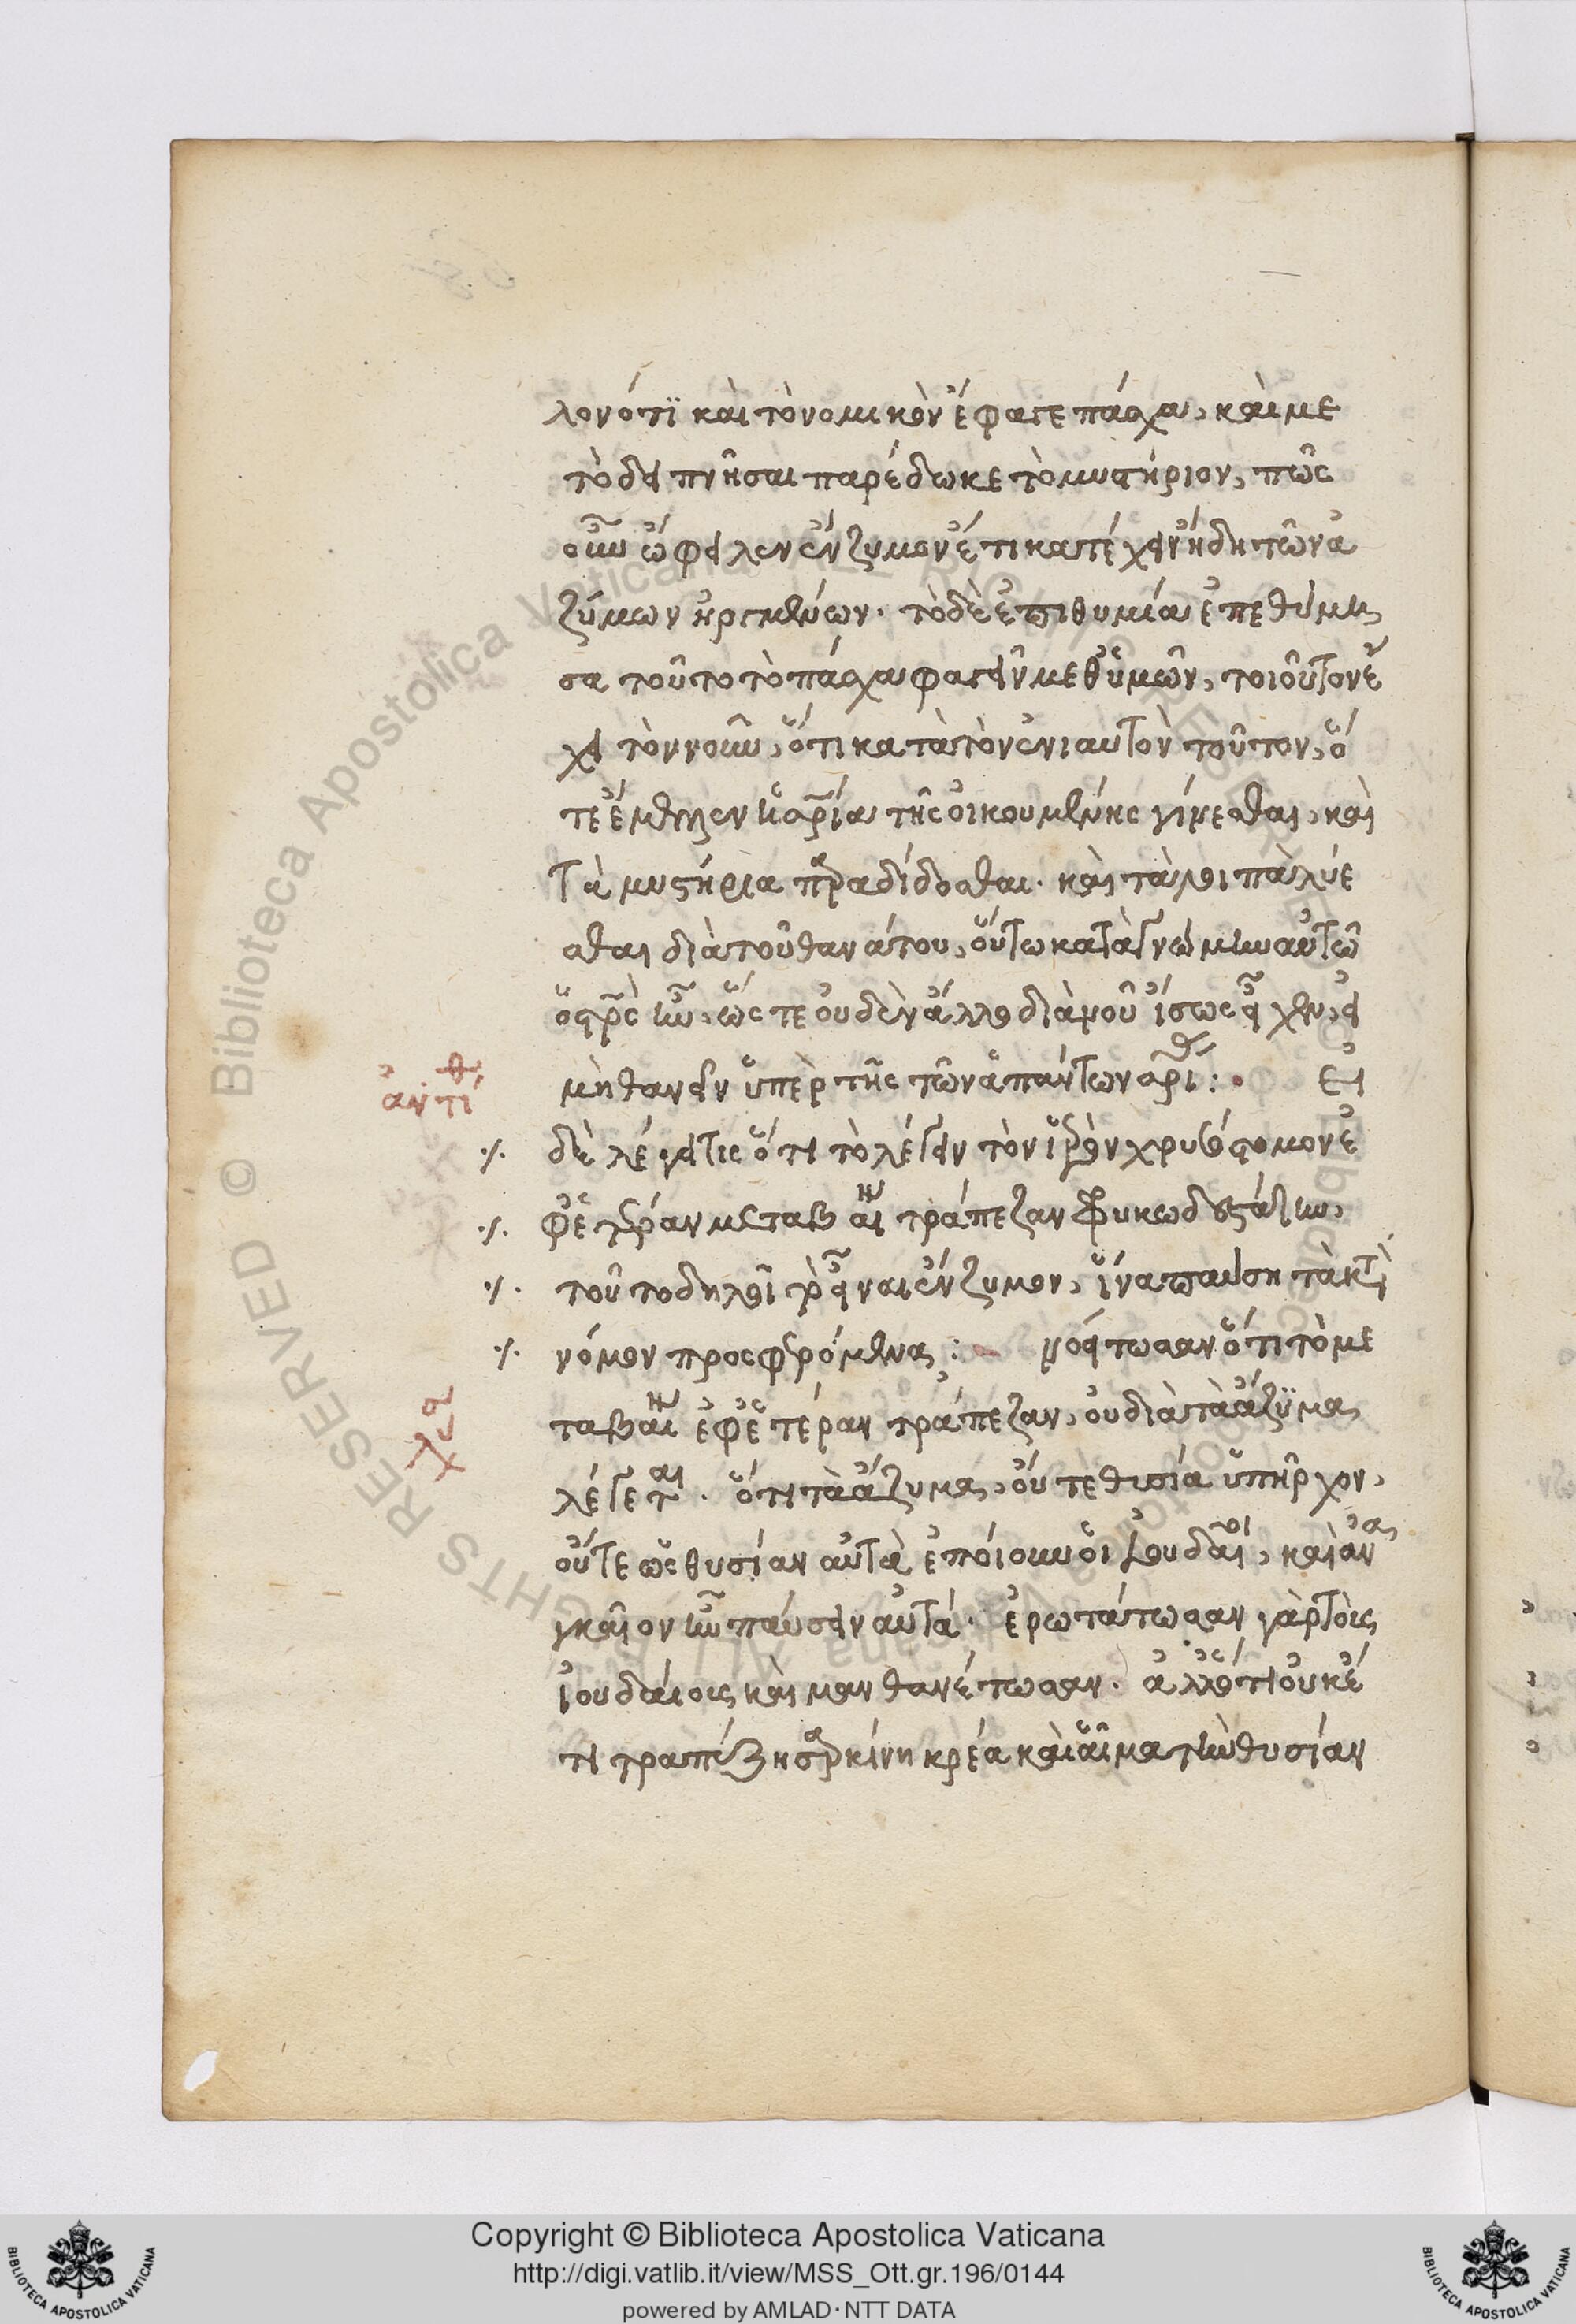 λονότϊ καὶ τὸ νομικὸν ἔφαγε πάσχα, καὶ με
τὸ δειπνῆσαι παρέδωκε τὸ μυστήριον, πῶς
οὖν ὤφειλεν ἔνζυμον ἔτι κατέχειν ἤδη τῶν ἀ
ζύμων ἠργμένων. τὸ δὲ ἐπιθυμία ἐπεθύμη
σα τοῦτο τὸ πάσχα φαγεῖν μεθ' ὑμῶν, τοιοῦτον ἔ
χει τὸν νοῦν, ὅτι κατὰ τὸν ἐνιαυτὸν τοῦτον, ὅ
τε ἔμελλεν ἡ σρία τῆς οἰκουμένης γίνεσθαι, καὶ
τὰ μυστήρια παραδίδοσθαι. καὶ τὰ λοιπὰ λύε
σθαι διὰ τοῦ θανάτου, οὕτω κατὰ γνώμην αὐτῶ
ὁ σρὸς ἦν, ὥστε οὐδὲν ἄλλο διὰ νοῦ ἴσως εἶχεν, εἰ
μὴ θανεῖν ὑπὲρ τῆς τῶν ἁπάντων σρί :
Εἰ
ἀντίθ
δὲ λέγει τις ὅτι τὸ λέγειν τὸν ἱερὸν χρυσόστομον ἐ
φ' ἑτέραν μεταβῆναι τράπεζαν φρικωδεστάτην,
τοῦτο δηλοῖ τὸ εἶναι ἔνζυμον, ἵνα παύση τὰ κτὶ
νόμον προσφερόμενα :
νοείτωσαν ὅτι τὸ με
λύσ
ταβῆναι ἐφ' ἑτέραν τράπεζαν, οὐ διὰ τὰ ἄζϋμα
λέγεται. ὅτι τὰ ἄζυμα, οὔτε θυσία ὑπῆρχον,
οὔτε ὡς θυσίαν αὐτὰ ἐποίουν οἱ ἰουδαῖοι, καὶ ἀνα
γκαῖον ἦν παύσειν αὐτά. ἐρωτάτωσαν γὰρ τοὺς
ἰουδαίους καὶ μανθανέτωσαν. ἀλλ' ὅτι οὐκέ
τι τραπέζη σαρκίνη κρέα καὶ αἷμα τὴν θυσίαν
Copyright © Biblioteca Apostolica Vaticana
http://digi.vatlib.it/view/MSS_Ott.gr.196/0144
powered by AMLAD·NTT DATA